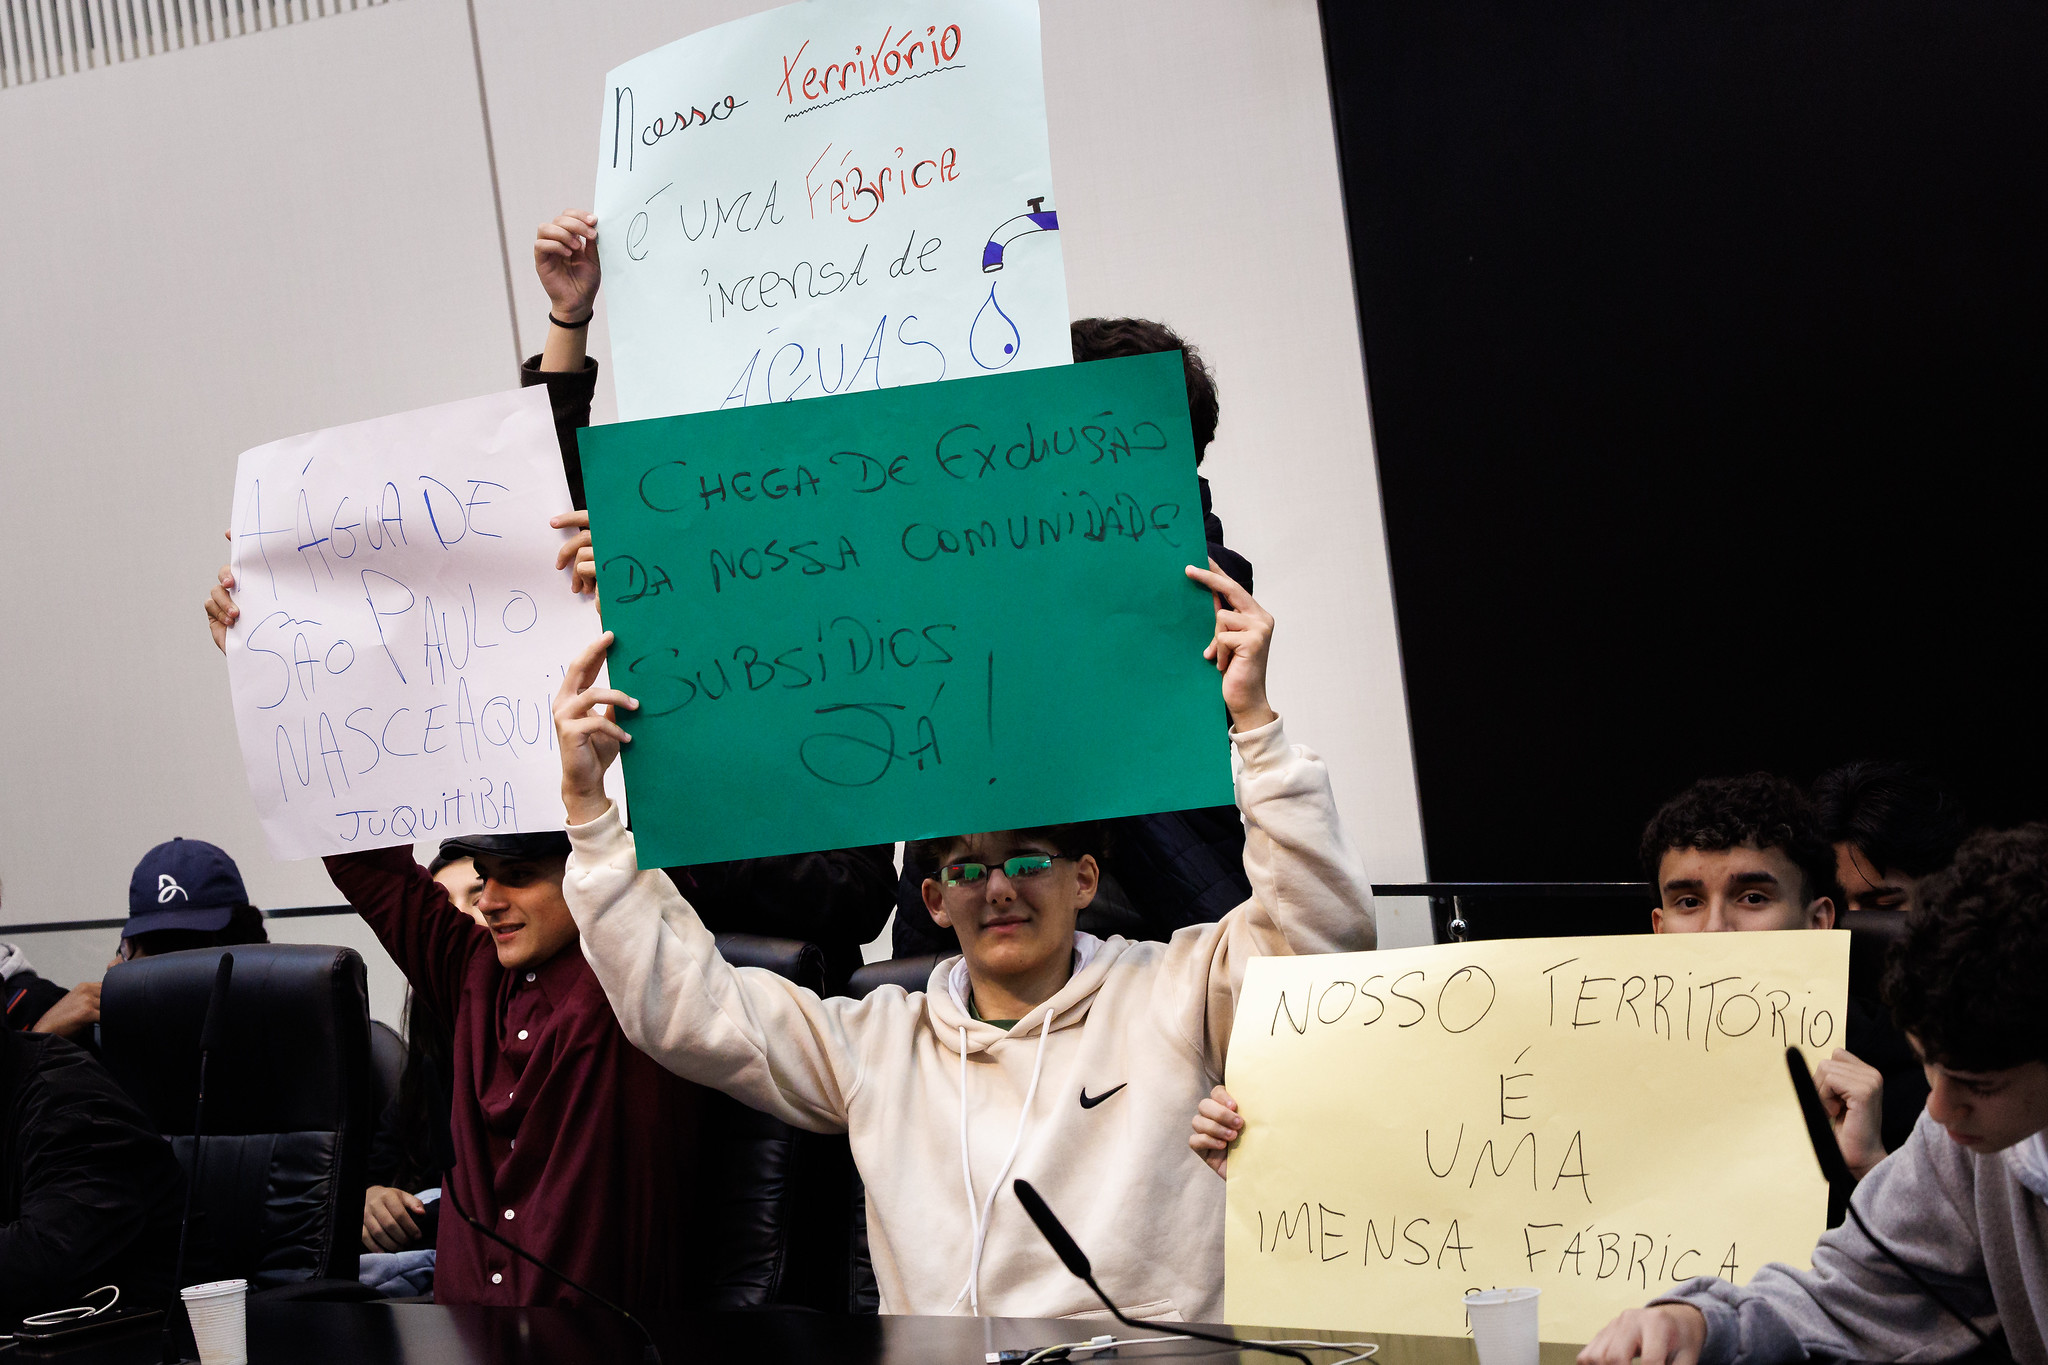 Nosso território
é UMA FÁBRICA
imensa de
ÁGUAS
CHEGA DE EXCLUSÃO
DA NOSSA COMUNIDADE
SUBSÍDIOS
JÁ!
A ÁGUA DE
SÃO PAULO
NASCE AQUI
JUQUITIBA
NOSSO TERRITÓRIO
É
UMA
IMENSA FÁBRICA